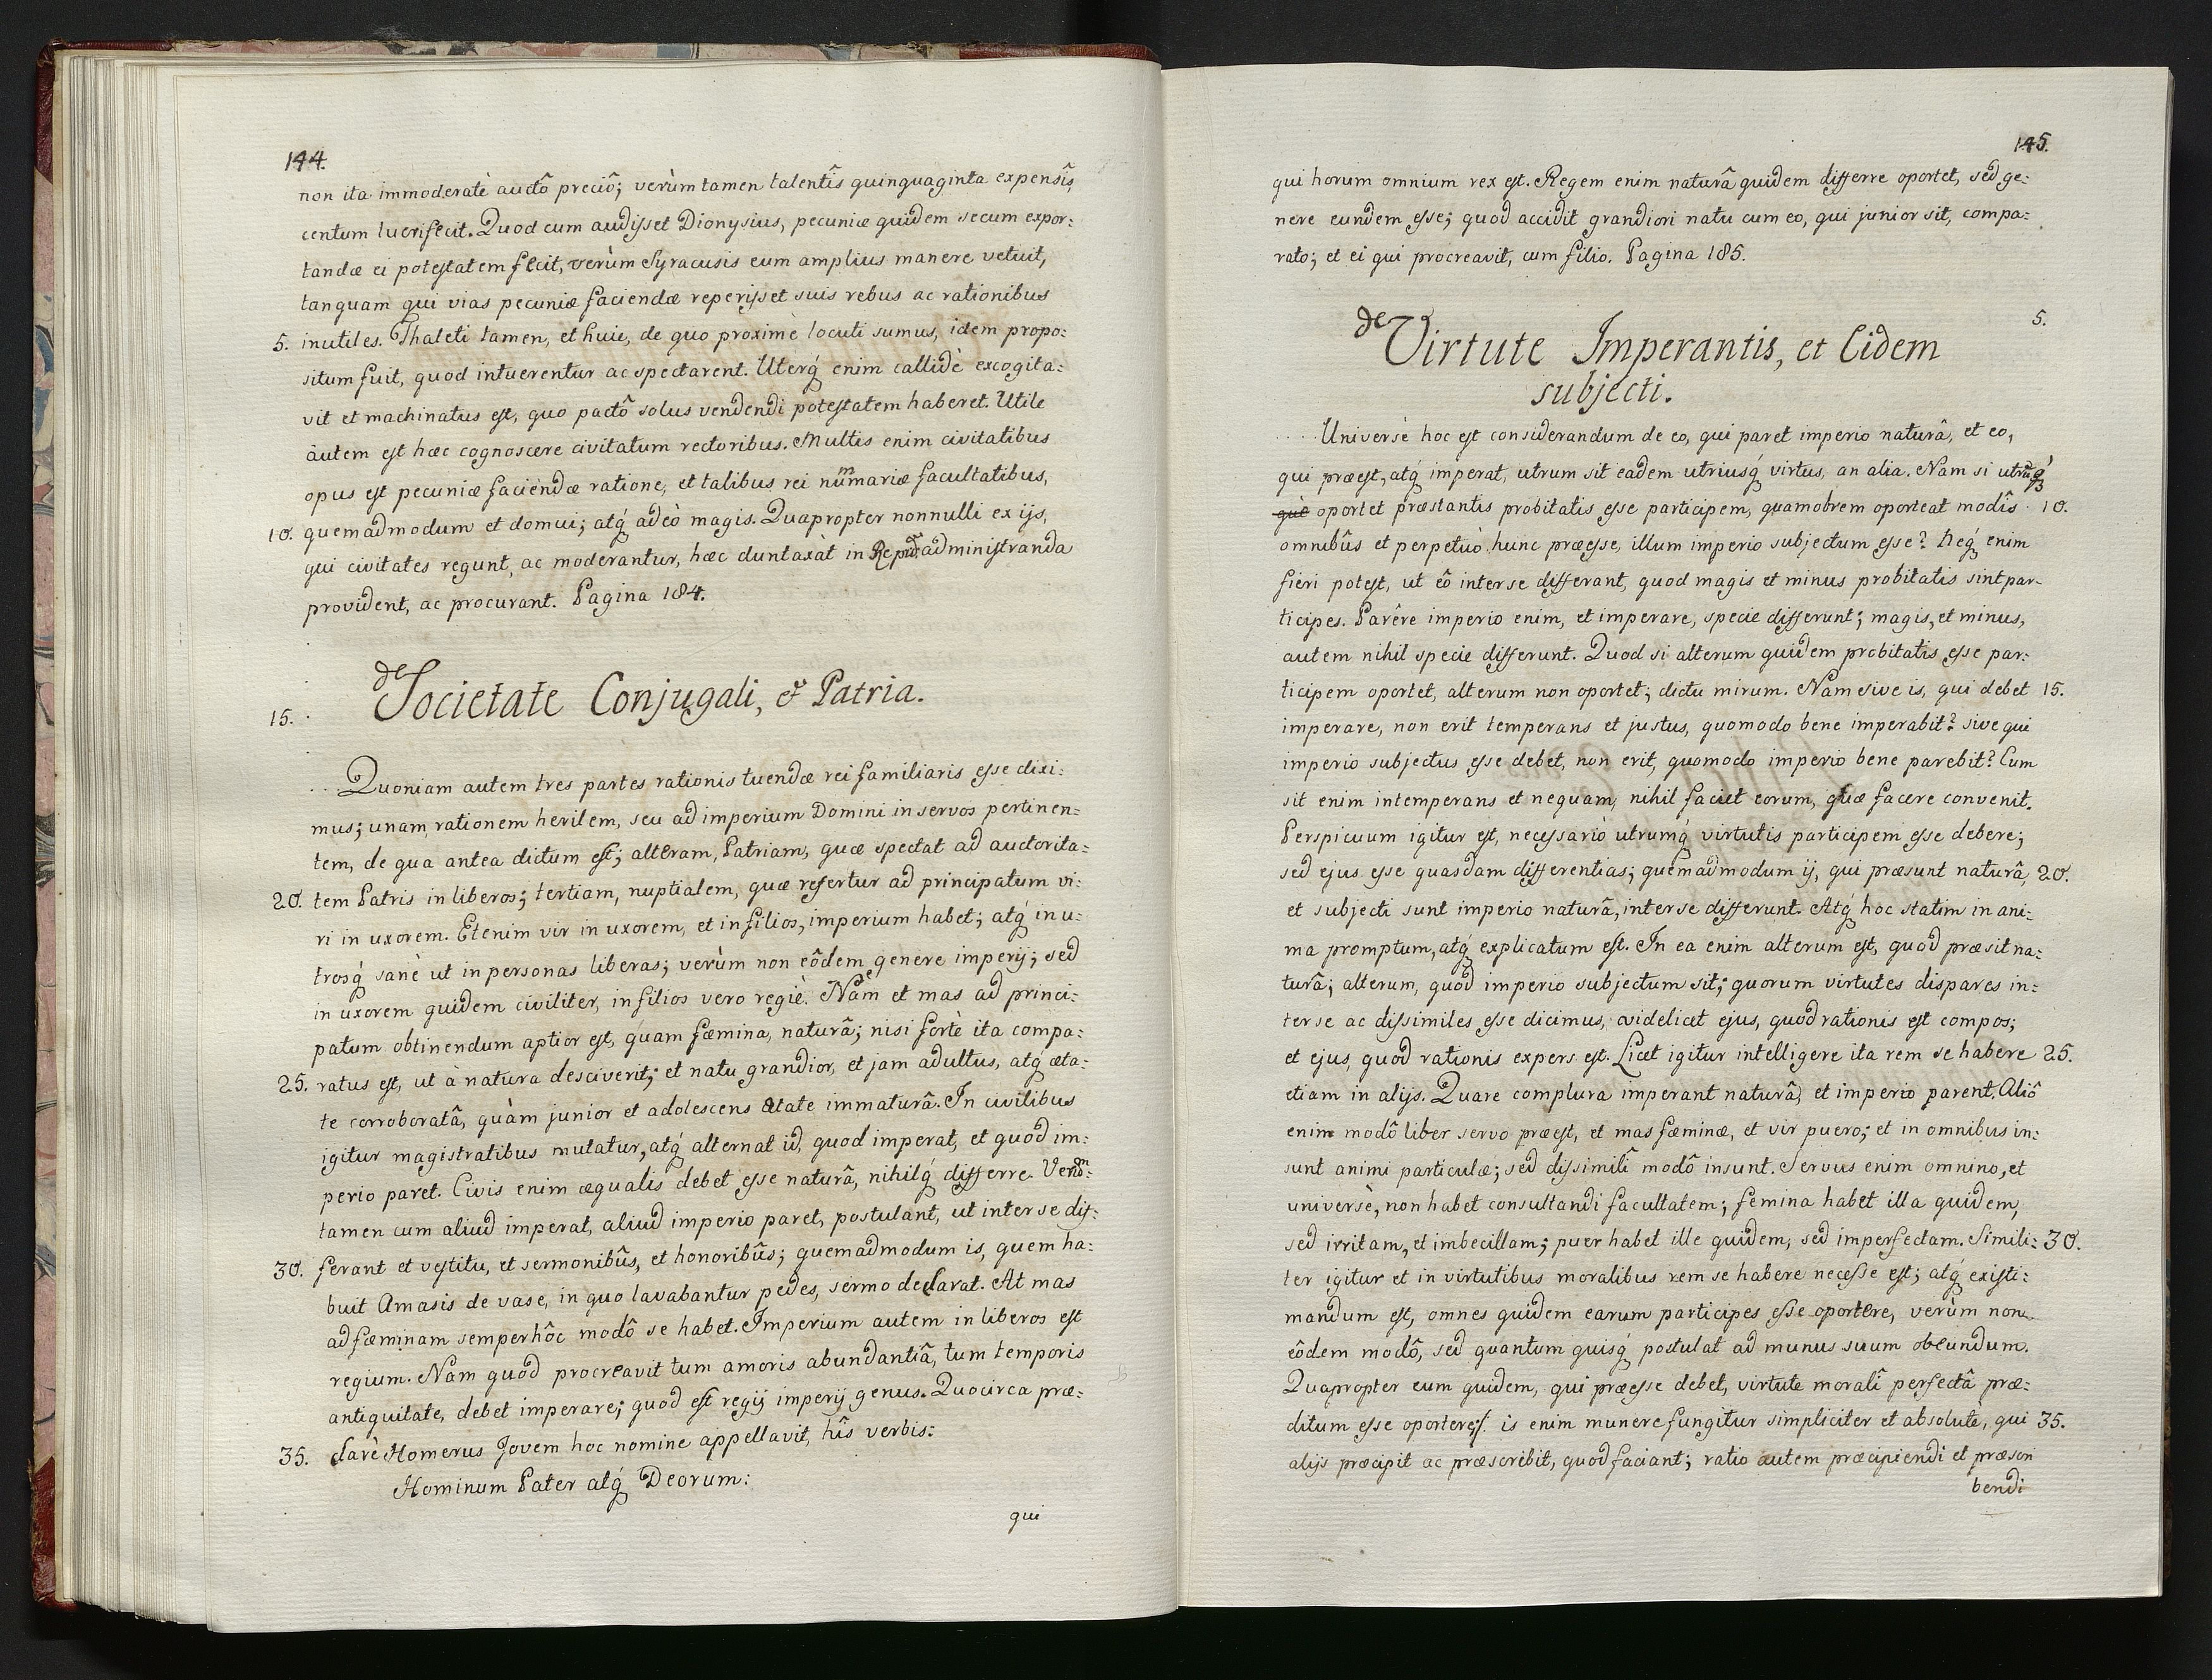 144.
non ita immoderatè auctô preciô; verùm tamen talentîs quinquaginta expensîs,
centum lucrifecit. Quod cum audijsset Dionysius, pecuniæ quidem secum expor:
tandæ ei potestatem fecit, verùm Syracusis eum amplius manere vetuit,
tanquam qui vias pecuniæ faciendæ reperijsset suis rebus ac rationibus
5. inutiles. Thaleti tamen, et huic, de quo proximè locuti sumus, idem propo:
situm fuit, quod intuerentur ac spectarent. Uterq́ enim callidè excogita:
vit et machinatus est, quo pactô solus vendendi potestatem haberet. Utile
àutem est hæc cognoscere civitatum rectoribus. Multis enim civitatibus
opus est pecuniæ faciendæ ratione, et talibus rei nummariæ facultatibus,
10. quemadmodum et domui; atq́ adeò magis. Quapropter nonnulli ex ijs,
qui civitates regunt, ac moderantur, hæc duntaxàt in administranda
provident, ac procurant. Pagina 184.
de Societate Conjugali, & Patria.
15.
Quoniam autem tres partes rationis tuendæ rei familiaris esse dixi:
mus; unam, rationem herilem, seu ad imperium Domini in servos pertinen-
tem, de qua antea dictum est; alteram, Patriam, quæ spectat ad auctorita:
20. tem Patris in liberos; tertiam, nuptialem, quæ refertur ad principatum vi:
ri in uxorem. Etenim vir in uxorem, et in filios, imperium habet; atq́ in u:
trosq́ sanè ut in personas liberas; verùm non eôdem genere imperij; sed
in uxorem quidem civiliter, in filios vero regiè. Nam et mas ad princi:
patum obtinendum aptior est, quam fæmina, naturâ; nisi fortè ita compa:
25. ratus est, ut à natura desciverit; et natu grandior, et jam adultus, atq́ æta:
te corroboratâ, quàm junior et adolescens ætate immaturâ. In civilibus
igitur magistratibus mutatur, atq́ alternat id, quod imperat, et quod im:
perio paret. Civis enim æqualis debet esse naturâ, nihilq́ differre. Verùm:
tamen cum aliud imperat, aliud imperio paret, postulant, ut inter se dif:
30. ferant et vestitu, et sermonibûs, et honoribûs; quemadmodum is, quem ha:
buit Amasis de vase, in quo lavabantur pedes, sermo declarat. At mas
ad fæminam semper hôc modô se habet. Imperium autem in liberos est
regium. Nam quod procreavit tum amoris abundantiâ, tum temporis
antiquitate, debet imperare; quod est regij imperij genus. Quocirca præ:
35. clarè Homerus Jovem hoc nomine appellavit, hîs verbis:
Hominum Pater atq́ Deorum:
qui
145.
qui horum omnium rex est. Regem enim naturâ quidem differre oportet, sed ge:
nere eundem esse; quod accidit grandiori natu cum eo, qui junior sit, compa:
rato; et ei qui procreavit, cum filio. Pagina 185.
5.
de Virtute Imperantis, et Eidem
subjecti.
Universè hoc est considerandum de eo, qui paret imperio naturâ, et eo,
qui præest, atq́ imperat, utrum sit eadem utriusq́ virtus, an alia. Nam si utrūq́
què oportet præstantis probitatis esse participem, quamobrem oporteat modîs 10.
omnibûs et perpetuò hunc præesse, illum imperio subjectum esse? Neq́ enim
fieri potest, ut eô inter se differant, quod magis et minus probitatis sint par-
ticipes. Parêre imperio enim, et imperare, specie differunt; magis, et minus,
autem nihil specie differunt. Quod si alterum quidem probitatis esse par:
ticipem oportet, alterum non oportet; dictu mirum. Nam sive is, qui debet 15.
imperare, non erit temperans et justus, quomodo bene imperabit? sive qui
imperio subjectus esse debet, non erit, quomodo imperio bene parebit? Cum
sit enim intemperans et nequam, nihil faciet eorum, quæ facere convenit.
Perspicuum igitur est, necessariò utrumq́ virtutis participem esse debere;
sed ejus esse quasdam differentias; quemadmodum ij, qui præsunt naturâ, 20.
et subjecti sunt imperio naturâ, inter se differunt. Atq́ hoc statim in ani:
ma promptum, atq́ explicatum est. In ea enim alterum est, quod præsit na:
turâ; alterum, quod imperio subjectum sit; quorum virtutes dispares in:
ter se ac dissimiles esse dicimus, videlicet ejus, quod rationis est compos;
et ejus, quod rationis expers est. Licet igitur intelligere ita rem se habere 25.
etiam in alijs. Quare complura imperant naturâ, et imperio parent. Aliô
enim modô liber servo præest, et mas fæminæ, et vir puero; et in omnibus in:
sunt animi particulæ; sed dissimilî modô insunt. Servus enim omnino, et
universè, non habet consultandi facultatem; femina habet illa quidem,
sed irritam, et imbecillam; puer habet ille quidem, sed imperfectam. Simili: 30.
ter igitur et in virtutibus moralibus rem se habere necesse est; atq́ existi:
mandum est, omnes quidem earum participes esse oportere, verùm non
eôdem modô, sed quantum quisq́ postulat ad munus suum obeundum.
Quapropter eum quidem, qui præesse debet, virtute moralî perfectâ præ:
ditum esse oportere; is enim munere fungitur simpliciter et absolutè, qui 35.
alijs præcipit ac præscribit, quod faciant; ratio autem præcipiendi et præscri
bendi